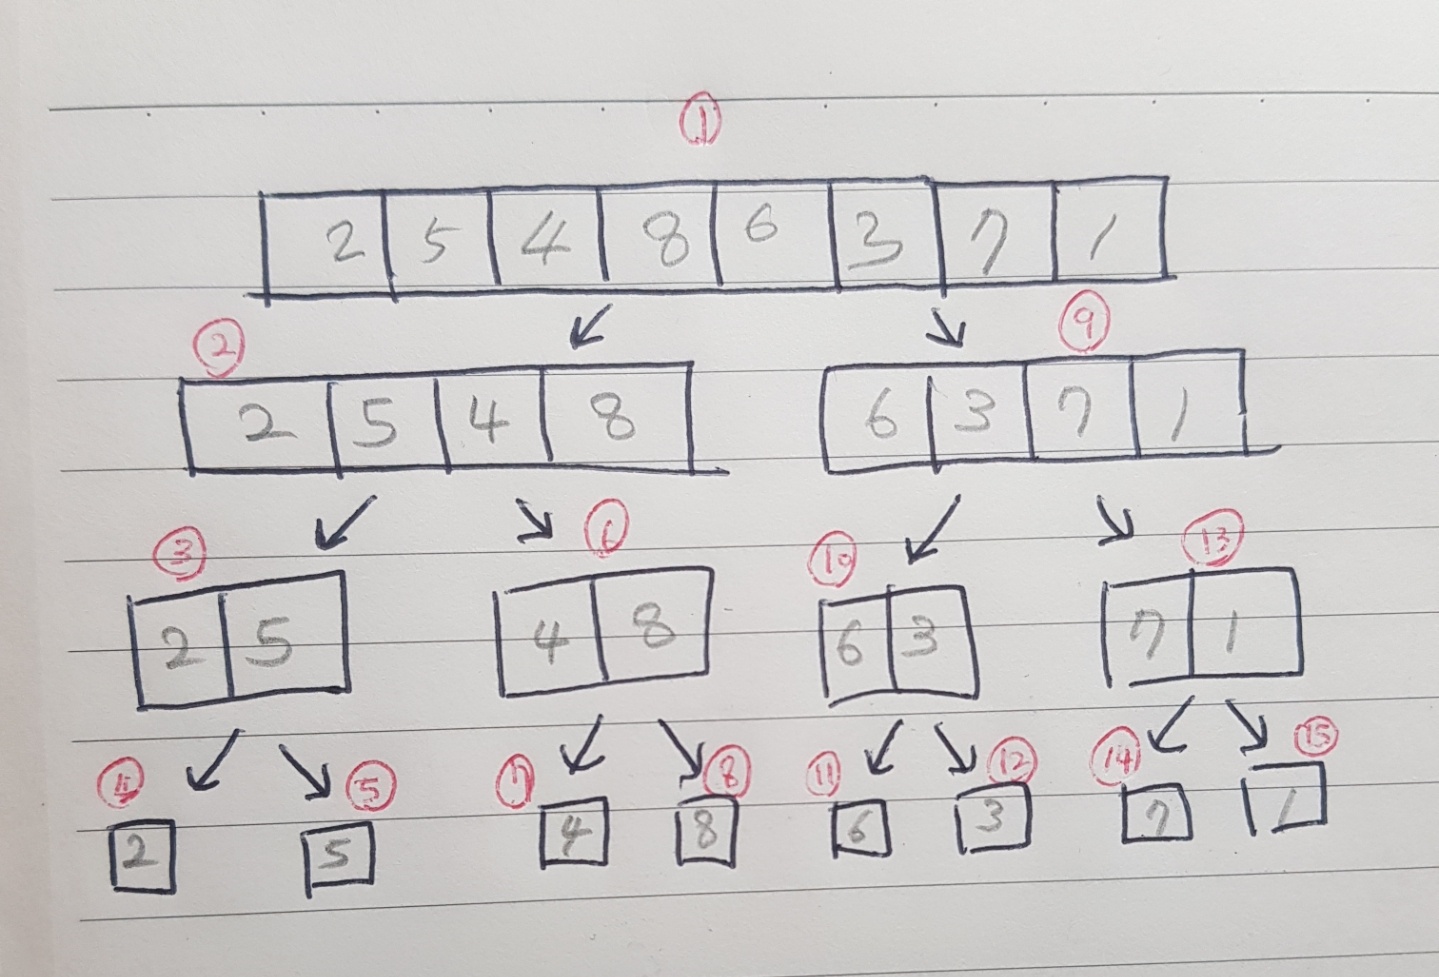 ①
2 5 4 8 6 3 7 1
② ⑨
2 5 4 8 6 3 7 1
③ ⑥ ⑩ ⑬
2 5 4 8 6 3 7 1
④ ⑤ ⑦ ⑧ ⑪ ⑫ ⑭ ⑮
2 5 4 8 6 3 7 1